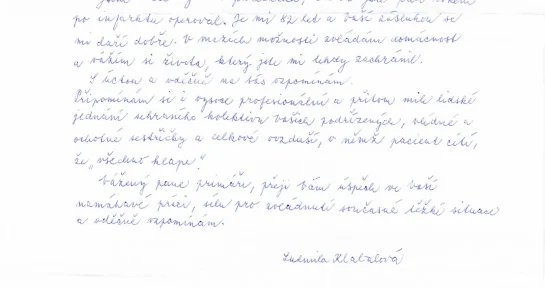 po infarktu operoval. Je mi 82 let a vaší zásluhou se
mi daří dobře. V mezích možností zvládám domácnost
a vážím si života, který jste mi tehdy zachránil.
S úctou a vděčně na vás vzpomínám.
Připomínám si i vysoce profesionální a přitom milé lidské
jednání sehraného kolektivu vašich podřízených, vlídné a
ochotné sestřičky a celkové ovzduší, v němž pacient cítí,
že „všechno klape."
Vážený pane primáři, přeji vám úspěch ve vaší
namáhavé práci, sílu pro zvládnutí současné těžké situace
a vděčně vzpomínám.
Ludmila Klabalová